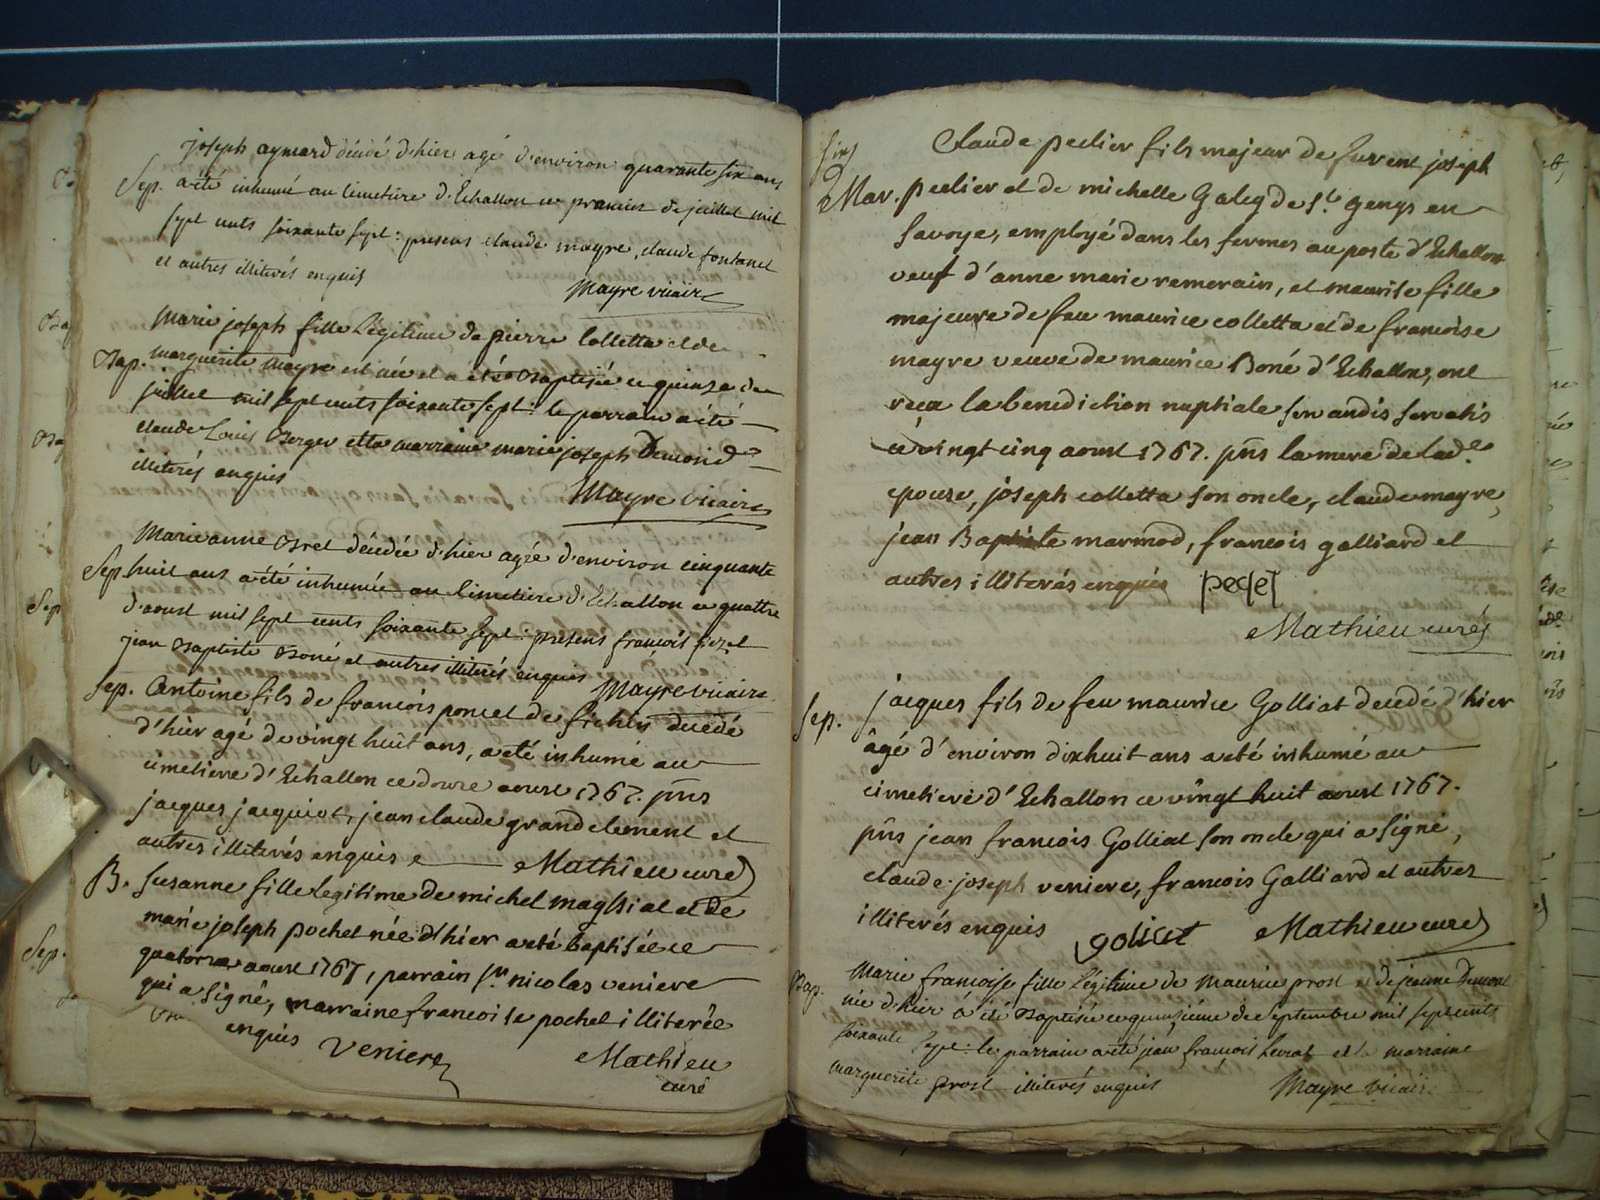 joseph aymard décédé d'hier agé d'environ quarante six ans
Sep. a été inhumé au cimetière d'Échallon ce premier de juillet mil
sept cents soixante sept: presens claude mayre, claude fontanel
et autres illiterés enquis
Mayre vicaire
Marie joseph fille légitime de pierre colletta et de
Bap. marguerite mayre est née et a été baptisée ce quinze de
juillet mil sept cents soixante sept: le parrain a été
claude Louis Berger et la marraine marie joseph Demond
illiterés enquis
Mayre vicaire
Marie anne Bret décédée d'hier agée d'environ cinquante
Sep. huit ans a été inhumée au cimetière d'Échallon ce quattre
d'aoust mil sept cents soixante sept: presens françois
jean baptiste Boné et autres illiterés enquis
Mayre vicaire
Sep. Antoine fils de francois poncet de décédé
d'hier agé de vingt huit ans, a eté inhumé au
cimetiere d'Echallon ce douze aoust 1767. pñs
jacques jacquiot, jean claude grandclement et
autres illiterés enquis Mathieu curé
B. Susanne fille legitime de michel et de
marie joseph pochet née d'hier a eté baptisée ce
quatorze aoust 1767, parrain sr. nicolas veniere
qui a signé, marraine francoise pochet illiterée
enquis Veniere Mathieu
curé
Claude peclier fils majeur de furent joseph
Mar. peclier et de michelle Galey de st. gengs en
Savoye, employé dans les fermes au poste d'Echallon
veuf d'anne marie remerain, et maurise fille
majeure de feu maurice colletta et de francoise
mayre veuve de maurice Boné d'Echallon, ont
recu la benediction nuptiale servandis servatis
ce vingt cinq aoust 1767. pñs la mere de lade.
epouse, joseph colletta son oncle, claude mayre,
jean Baptiste marmod, francois galliard et
autres illiterés enquis
Mathieu curé
jacques fils de feu maurice Golliat decedé d'hier
Sep.
âgé d'environ dixhuit ans a eté inhumé au
cimetiere d'Echallon ce vingt huit aoust 1767.
pñs jean francois Golliat son oncle qui a signé,
claude-joseph veniere, francois Galliard et autres
illiterés enquis golliat Mathieu curé
Bap. Marie françoise fille légitime de Maurice prost et de jeanne Demond
née d'hier a été baptisée ce quinzième de septembre mil sept cents
soixante sept: le parrain a été jean françois et la marraine
marguerite prost illiterés enquis Mayre vicaire